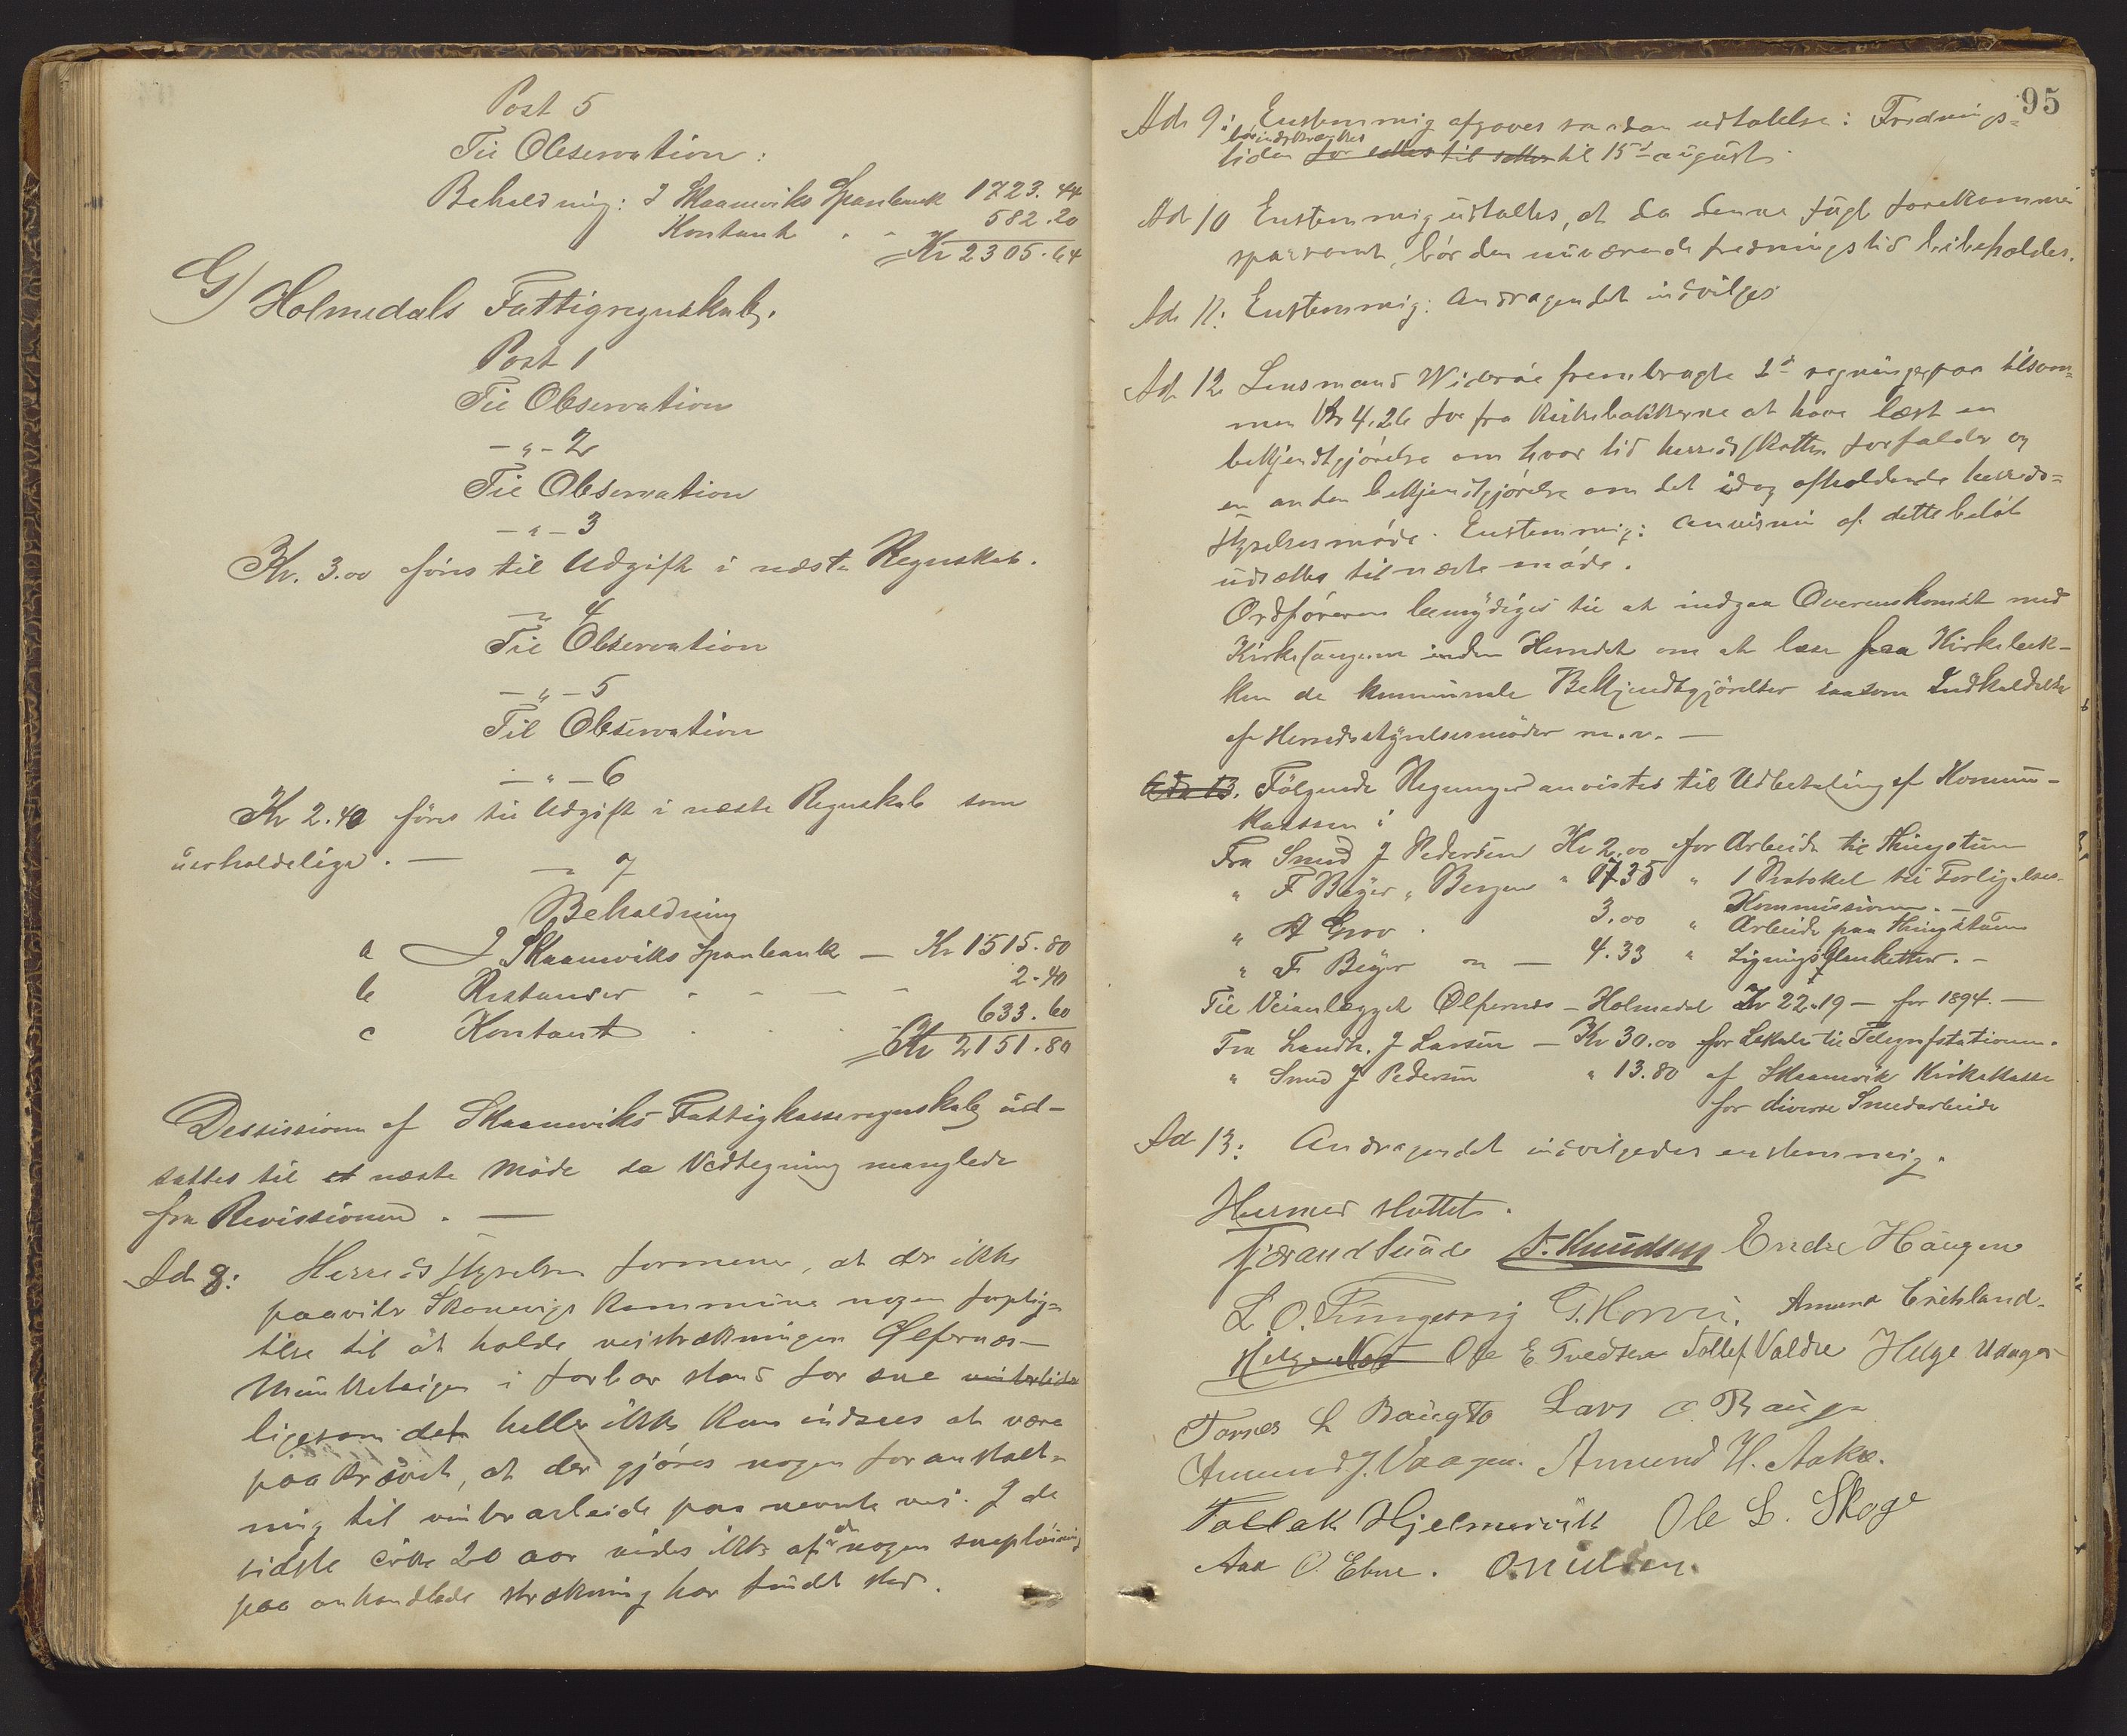 Post 5
Til Observation:
Beholdning: I Skaaneviks Sparebank 1723.44
Kontant " " 582.20
Kr 2305.64
G) Holmedals Fattigregnskab.
Post 1
Til Observation
- " - 2
Til Observation
- " - 3
Kr. 3.00 föres til Udgift i næste Regnskab.
" 4
Til Observation
- " - 5
Til Observation
- " - 6
Kr 2.40 föres til Udgift i næste Regnskab som
uerholdelige. —
— 7
Beholdning
a I Skaaneviks Sparebank — Kr 1515.80
b Restanser - - — - 2.40
c Kontant . . . 633.60
Kr 2151.80
Dessisionen af Skaaneviks Fattigkasseregnskab ud-
sattes til et næste Möde da Vedtegning manglede
fra Revissionen. —
Ad 8: Herredsstyrelsen formener, at der ikke
paahviler Skonevigs kommune nogen forplig-
telse til at holde veistrækningen Ølfernæs-
Munketeigen i farbar stand for sne vinterlide
ligesom det heller ikke kan indsees at være
paakrævet, at der gjöres nogen foranstalt-
ning til vinterarbeide paa nevnte vei. I de
sidste cirka 20 aar vides ikke at der nogen sneplöining
paa omhandlede strækning har fundet sted.
95
Ad 9: Enstemmig afgaves saadan udtalelse: Frednings-
bör indskrænkes
tiden for settes til settes til 15de august.
Ad 10 Enstemmig udtaltes, at da denne fugl forekommer
sparsomt, bör den nuværende fredningstid beibeholdes.
Ad 11: Enstemmig: Andragendet indvilges
Ad 12 Lensmand Wideröe frembragte 2de regninger paa tilsam-
men Kr 4.26 for fra Kirkebakkerne at have læst en
bekjendtgjörelse om hvor tid herredsskatten forfalder og
en anden bekjendtgjörelse om det idag afholdende herreds-
styrelsesmöde. Enstemmig: Anvisning af dette belöb
udsættes til næste möde.
Ordföreren bemyndiges til at indgaa Overenskomst med
Kirkesangerne inden Herredet om at læse fra Kirkebak-
ken de kommunale Bekjendtgjörelser saasom Indkaldelse
af Herredsstyrelsesmöder m.v. —
Ad 13. Fölgende Regninger anvistes til Udbetaling af Kommu-
kassen:
Fra Smed J Pedersen Kr 2.00 for Arbeide til Thingstuen
" F Beyer, Bergen " 17.35 " 1 Protokol til Forligelses-
Kommissionen. —
" A Grov . 3.00 " Arbeide paa Thingstuen
" F. Beyer — 4.33 " Ligningsblanketter. —
Til Veianlægget Ölfernes - Holmedal Kr 22.19 — for 1894. —
Fra Landh. J Larsen — Kr 30.00 for Lokale til Telegrafstationen.
" Smed J Pedersen " 13.80 af Skaanevik Kirkekasse
for diverse Smedarbeide
Ad 13: Andragendet indvilgedes enstemmig.
Hermed sluttet.
Tjærand Sunde A. Knudsen Endre Haugen
L. O. Fungesvig G. Horvei. Amund Eriksland.
Helge Ole E Tvedten Tollef Valdre Helge Udnages
Tornes L Baugsto Lars O. Bauge
Amund J. Vaagen. Amund H. Aakre.
Tollak Hjelmevik Ole L. Skoge
Aan O Ebne. O. Nielsen.